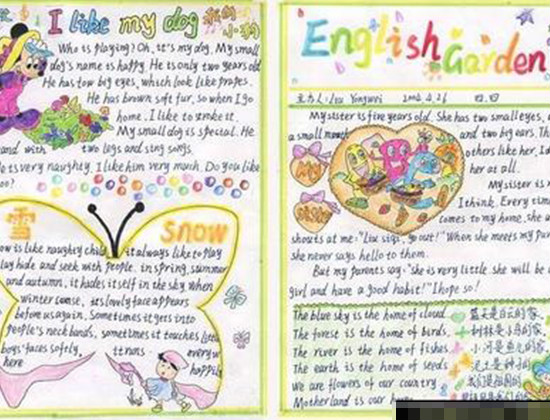 I like my dog 我的小狗
Who is playing? Oh, it's my dog. My small
dog's name is happy. He is only two years old
He has tow big eyes, which look like prapes.
He has brown soft fur, so when I go
home. I like to stroke it.
My small dog is special. He
and with two legs and sing songs.
is very naughty. I like him very much. Do you like
雪 SNOW
ow is like naughty child, it always like to play
hide and seek with people. in spring, summer
and autumn, it hides itself in the sky. When
winter comse, its lovely face appears
before us again. Sometimes it gets into
people's neck bands, sometimes it touches little
boys' faces softly,
here it runs happily
English Garden
主办人: Lou Yongwei 2006.4.26
My sister is five years old. She has two small eyes,
a small mouth and two big ears. Th
others like her, I d
her at all.
My sister is n
I think. Every time
comes to my home, she a
shouts at me: go out!" When she meets my par
she never says hello to them.
But my parents say: "she is very little. she will be
girl and have a good habit! "I hope so!
My
sister
The blue sky is the home of cloud. 蓝天是白云的家.
The forest is the home of birds. 树林是小鸟的家.
The river is the home of fishes. 小河是鱼儿的家.
The earth is the home of seeds 泥土是种子的
We are flowers of our country 我们是祖国的
Motherland is our